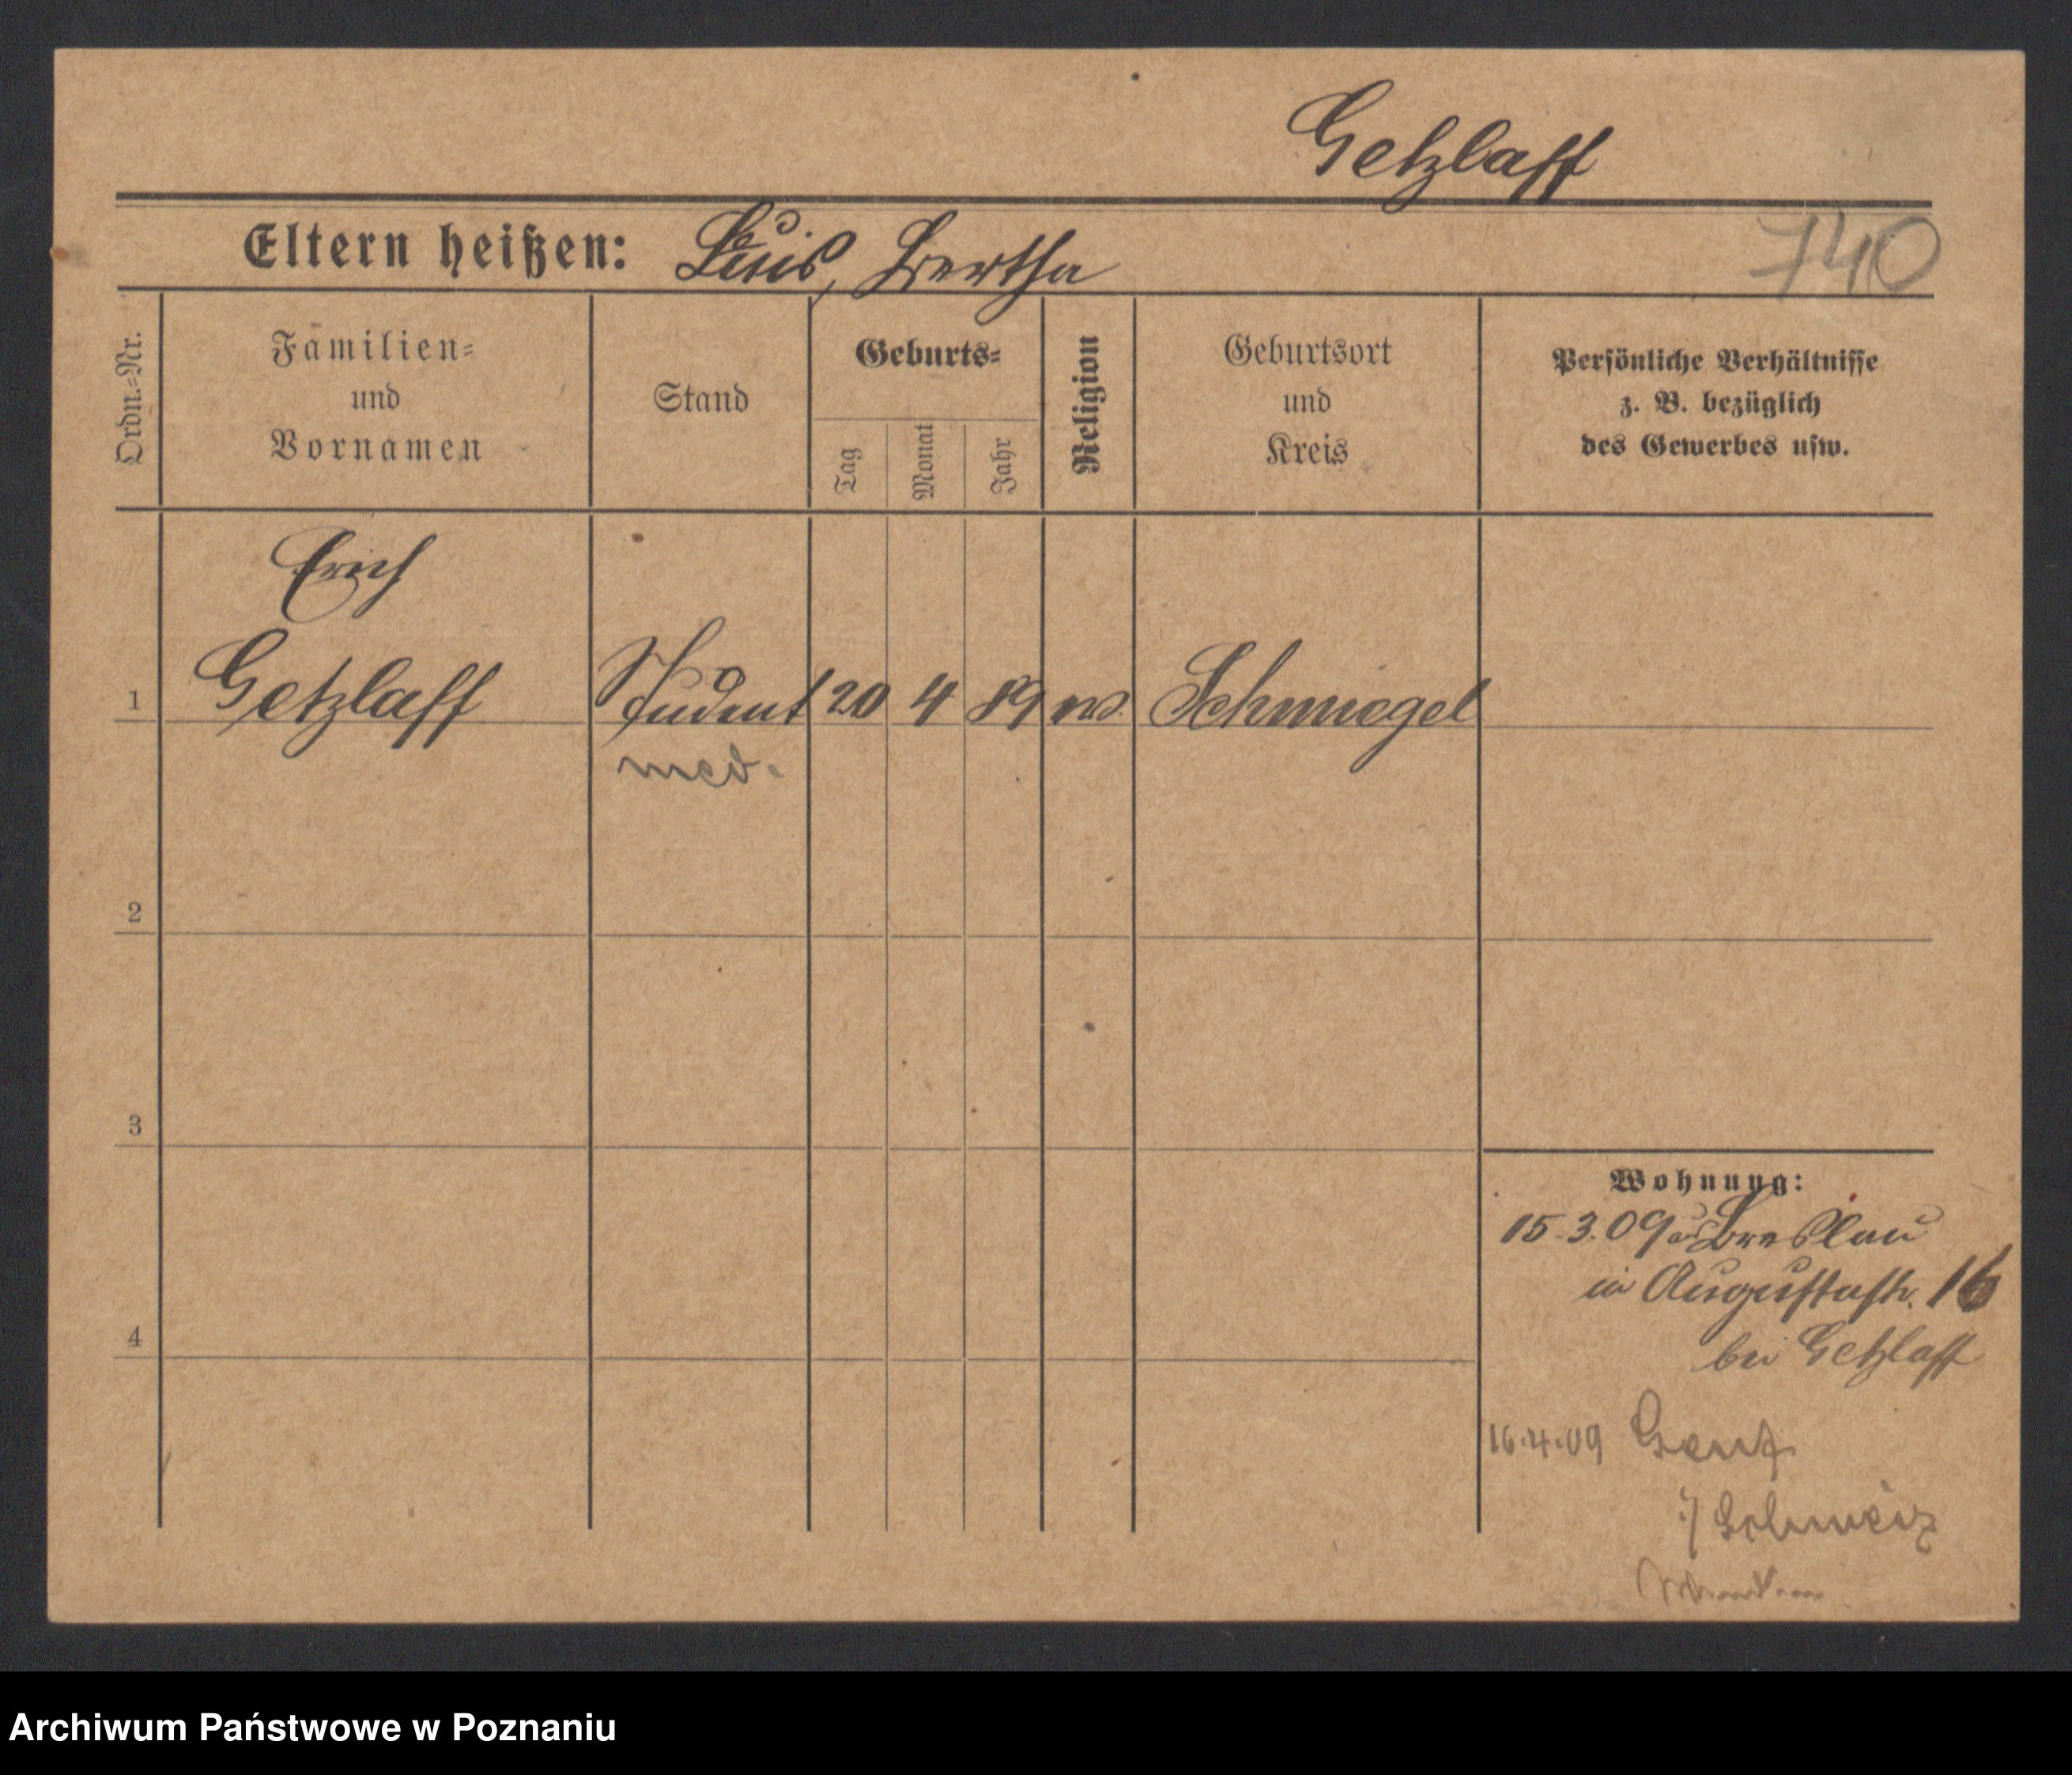 Getzlaff
Eltern heißen: Luis, Bertha
740
Ordn.-Nr.
Familien-
und
Vornamen
Stand
Geburts-
Tag
Monat
Jahr
Religion
Geburtsort
und
Kreis
Persönliche Verhältnisse
z. B. bezüglich
des Gewerbes usw.
Erich
1 Getzlaff Student 20 4 89 Schmiegel
med.
2
3
4
Wohnung:
15.3.09 aus Breslau
in Augustastr. 16
bei Getzlaff
16.4.09 Genf
i/ Schweiz
Archiwum Państwowe w Poznaniu